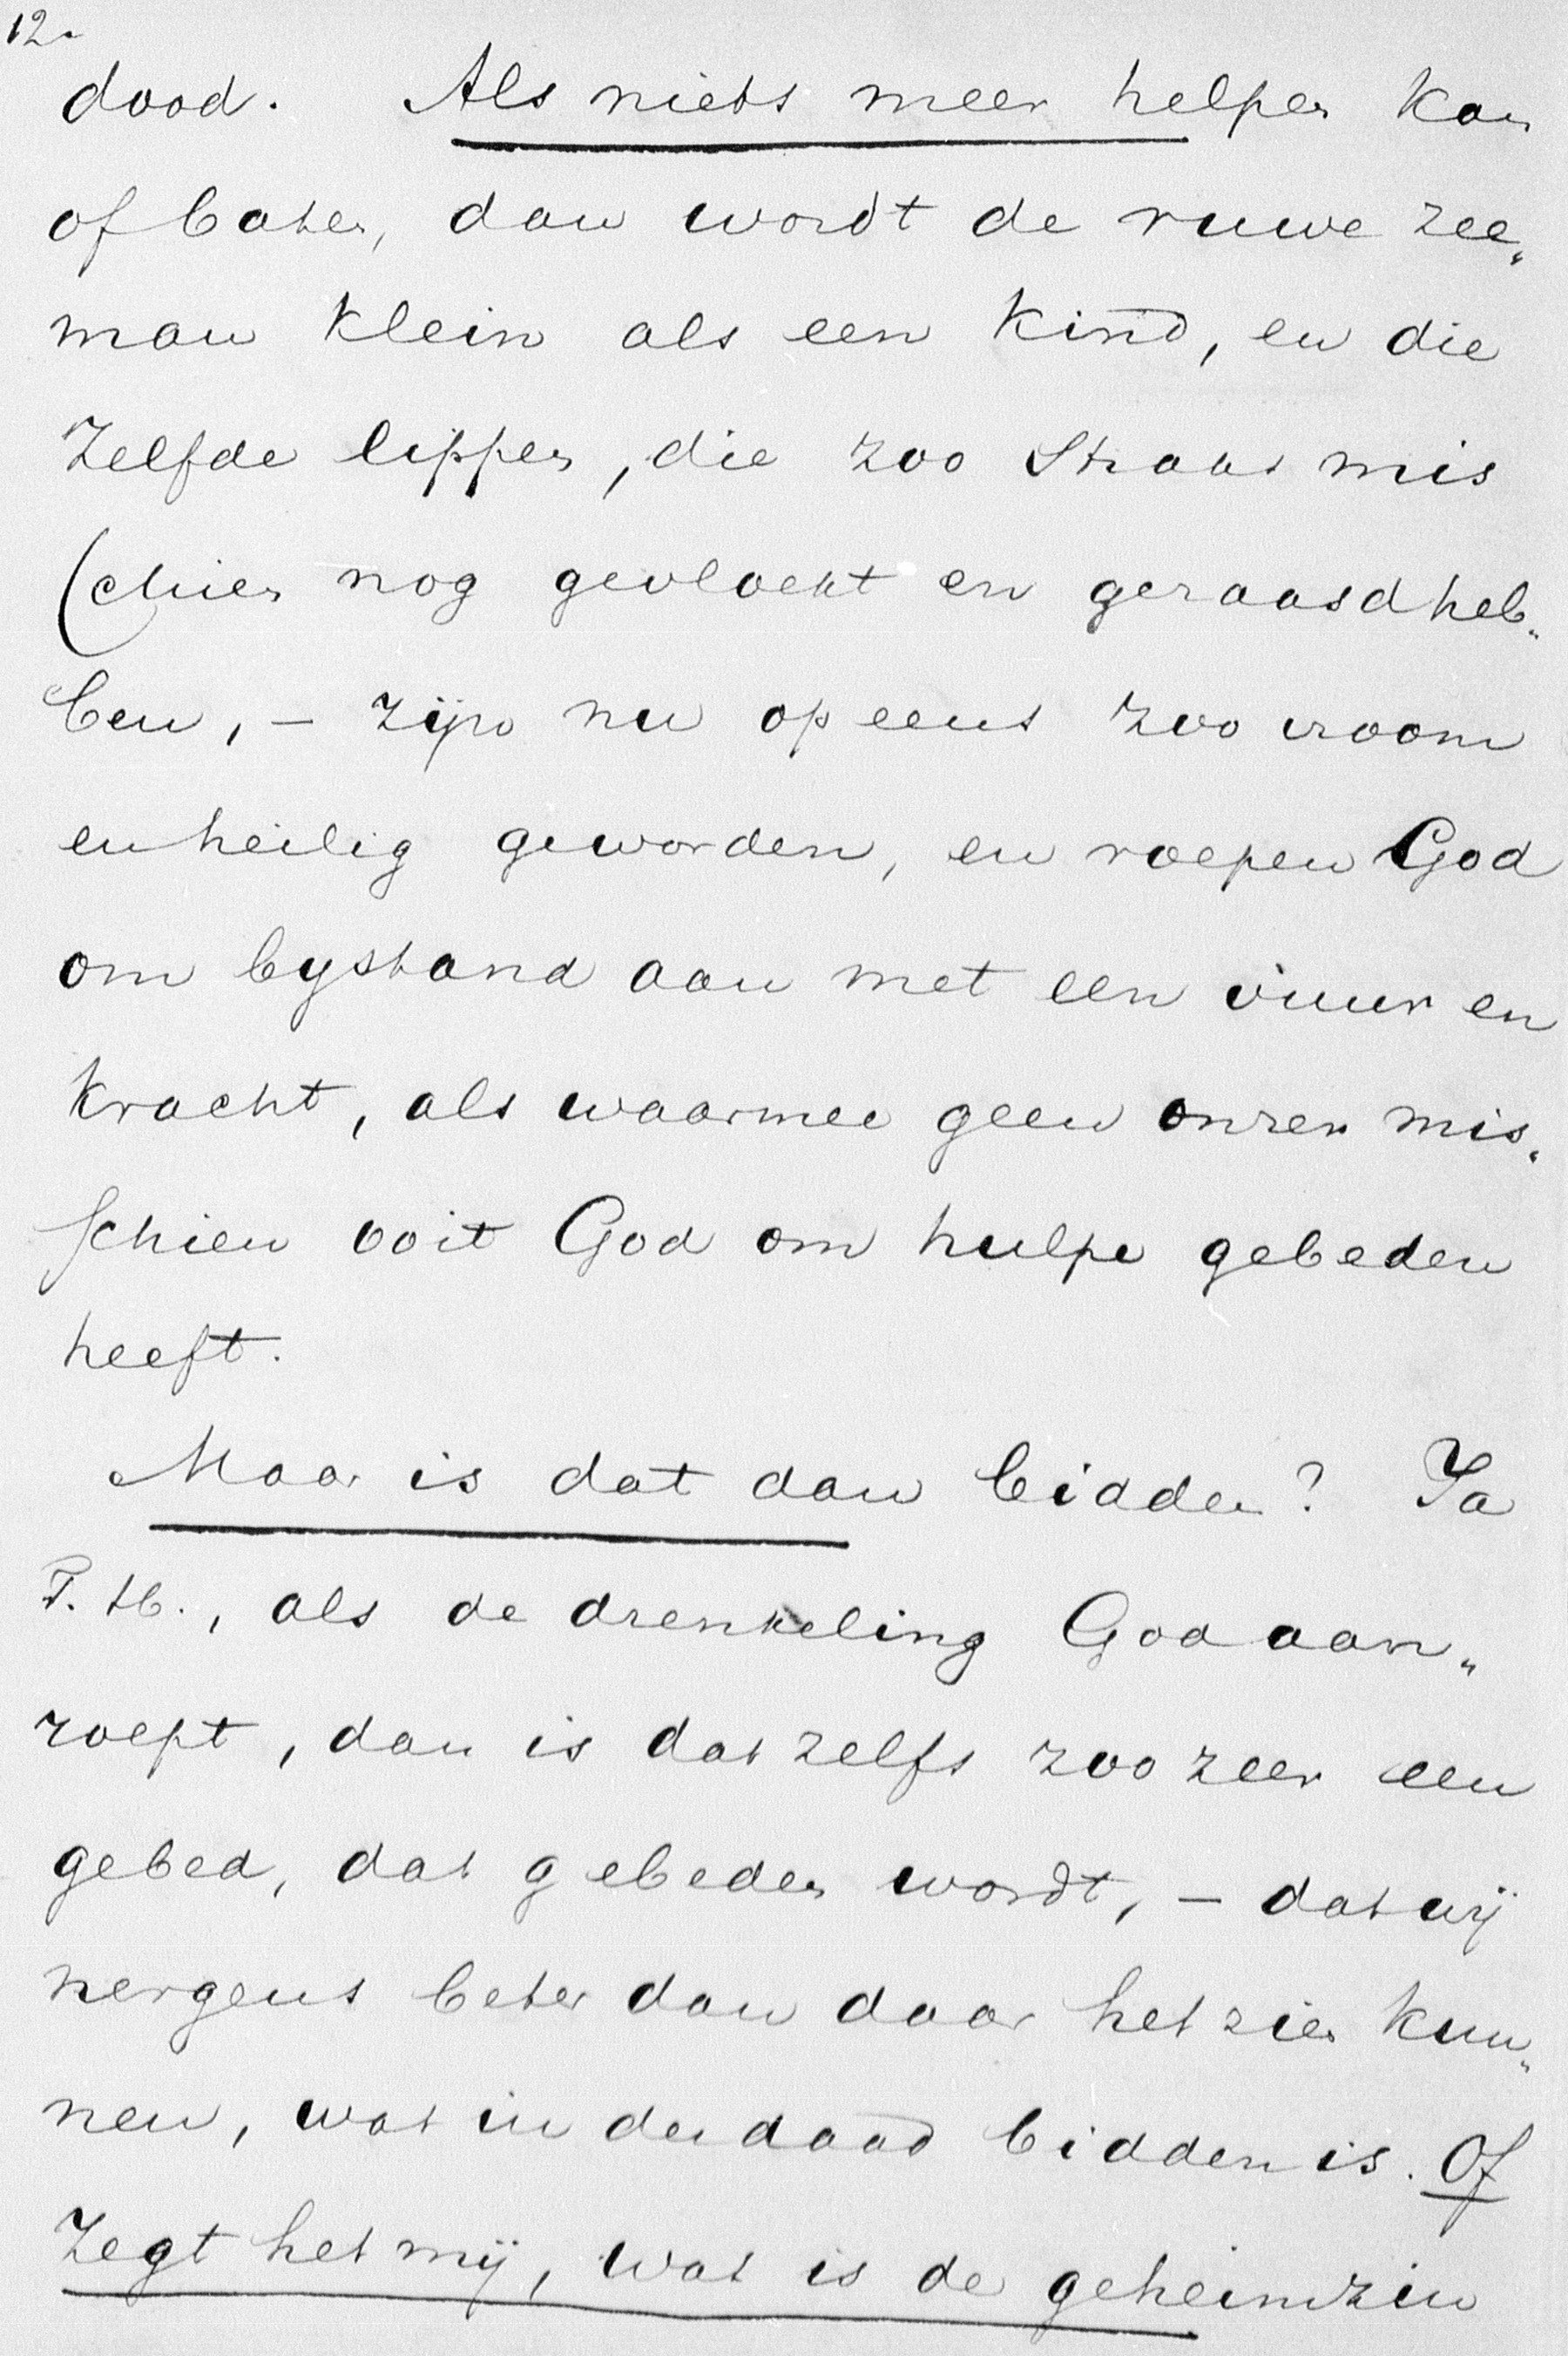 12.
dood. Als niets meer helpen kan
of baten, dan wordt de ruwe zee„
man klein als een kind, en die
zelfde lippen, die zoo straat mis
schien nog gevloekt en geraasd heb„
ben, – zijn nu op eens zoo vroom
en heilig geworden, en roepen God
om bystand aan met een vuur en
kracht, als waarmee geen onzer mis„
schien ooit God om hulpe gebeden
heeft.
Maar is dat dan bidden? Ja
T. H., als de drenkeling God aan„
roept, dan is dat zelfs zoo zeer een
gebed, dat gebeden wordt, – dat wij
nergens beter dan daar het zien kun„
nen, wat in der daad bidden is. Of
zegt het mij, wat is de geheimzin